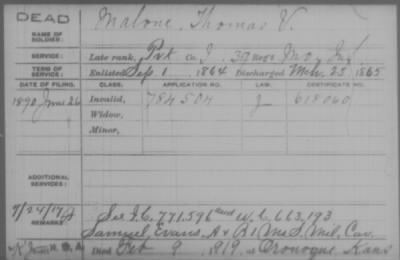 DEAD
NAME OF SOLDIER:
Malone, Thomas V.
SERVICE:
Late rank, Pvt Co. I, 39 Reg't Mo. Inf.
TERM OF SERVICE:
Enlisted Sep 1, 1864 Discharged 25, 1865
DATE OF FILING. CLASS. APPLICATION NO. LAW. CERTIFICATE NO.
1890 June 26 Invalid, 784504 J 618060
Widow,
Minor,
ADDITIONAL SERVICES:
9/24/17
REMARKS:
See I.C. 771,596 and W.C. 663,193
Samuel Evans, A & B 1 Mo. S. Mil. Cav.
Died Feb 9, 1919, at Oronogue Kans